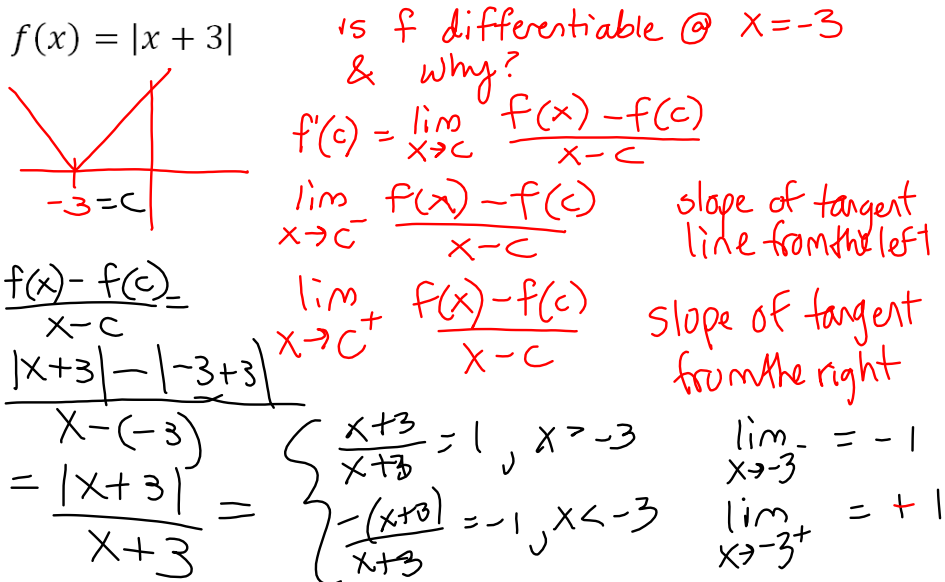 f(x) = |x + 3|
is f differentiable @ x = -3
& why?
f'(c) = lim x→c (f(x) - f(c))/(x - c)
-3 = c
lim x→c⁻ (f(x) - f(c))/(x - c)
slope of tangent
line from the left
lim x→c⁺ (f(x) - f(c))/(x - c)
slope of tangent
from the right
(f(x) - f(c))/(x - c) =
(|x+3| - |-3+3|)/(x - (-3))
= |x+3|/(x+3) = {
(x+3)/(x+3) = 1, x > -3
(-(x+3))/(x+3) = -1, x < -3
lim x→-3⁻ = -1
lim x→-3⁺ = +1